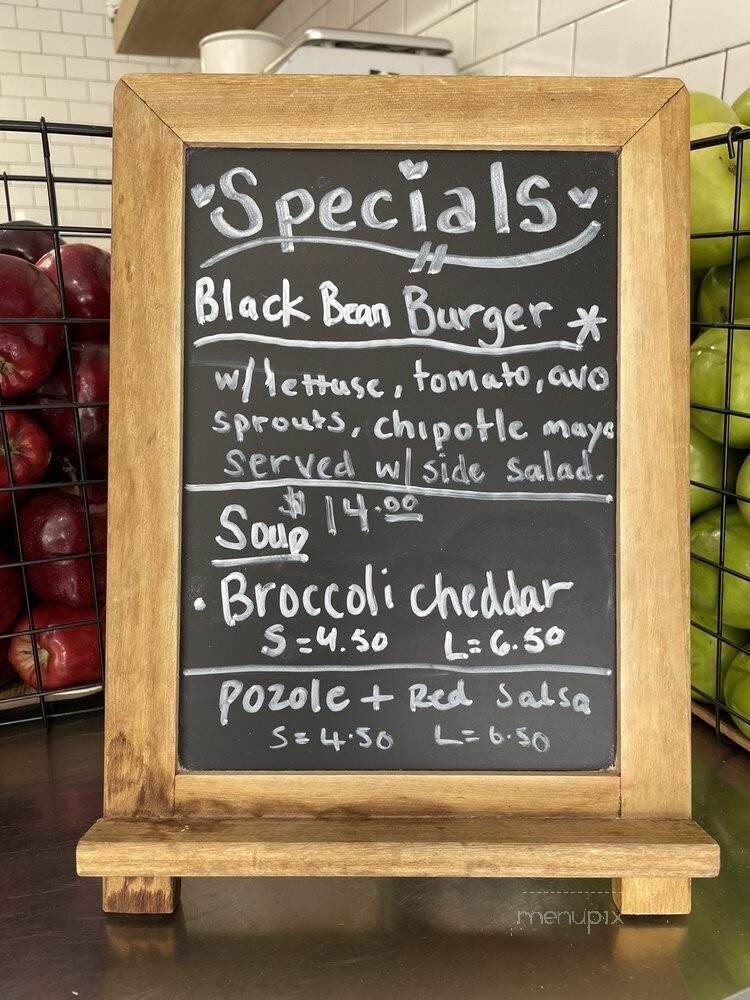 Specials
Black Bean Burger *
w/ lettuse, tomato, avo
sprouts, chipotle mayo
Served w/ side salad.
$14.00
Soup
· Broccoli cheddar
S=4.50 L=6.50
Pozole + Red Salsa
S=4.50 L=6.50
menupix